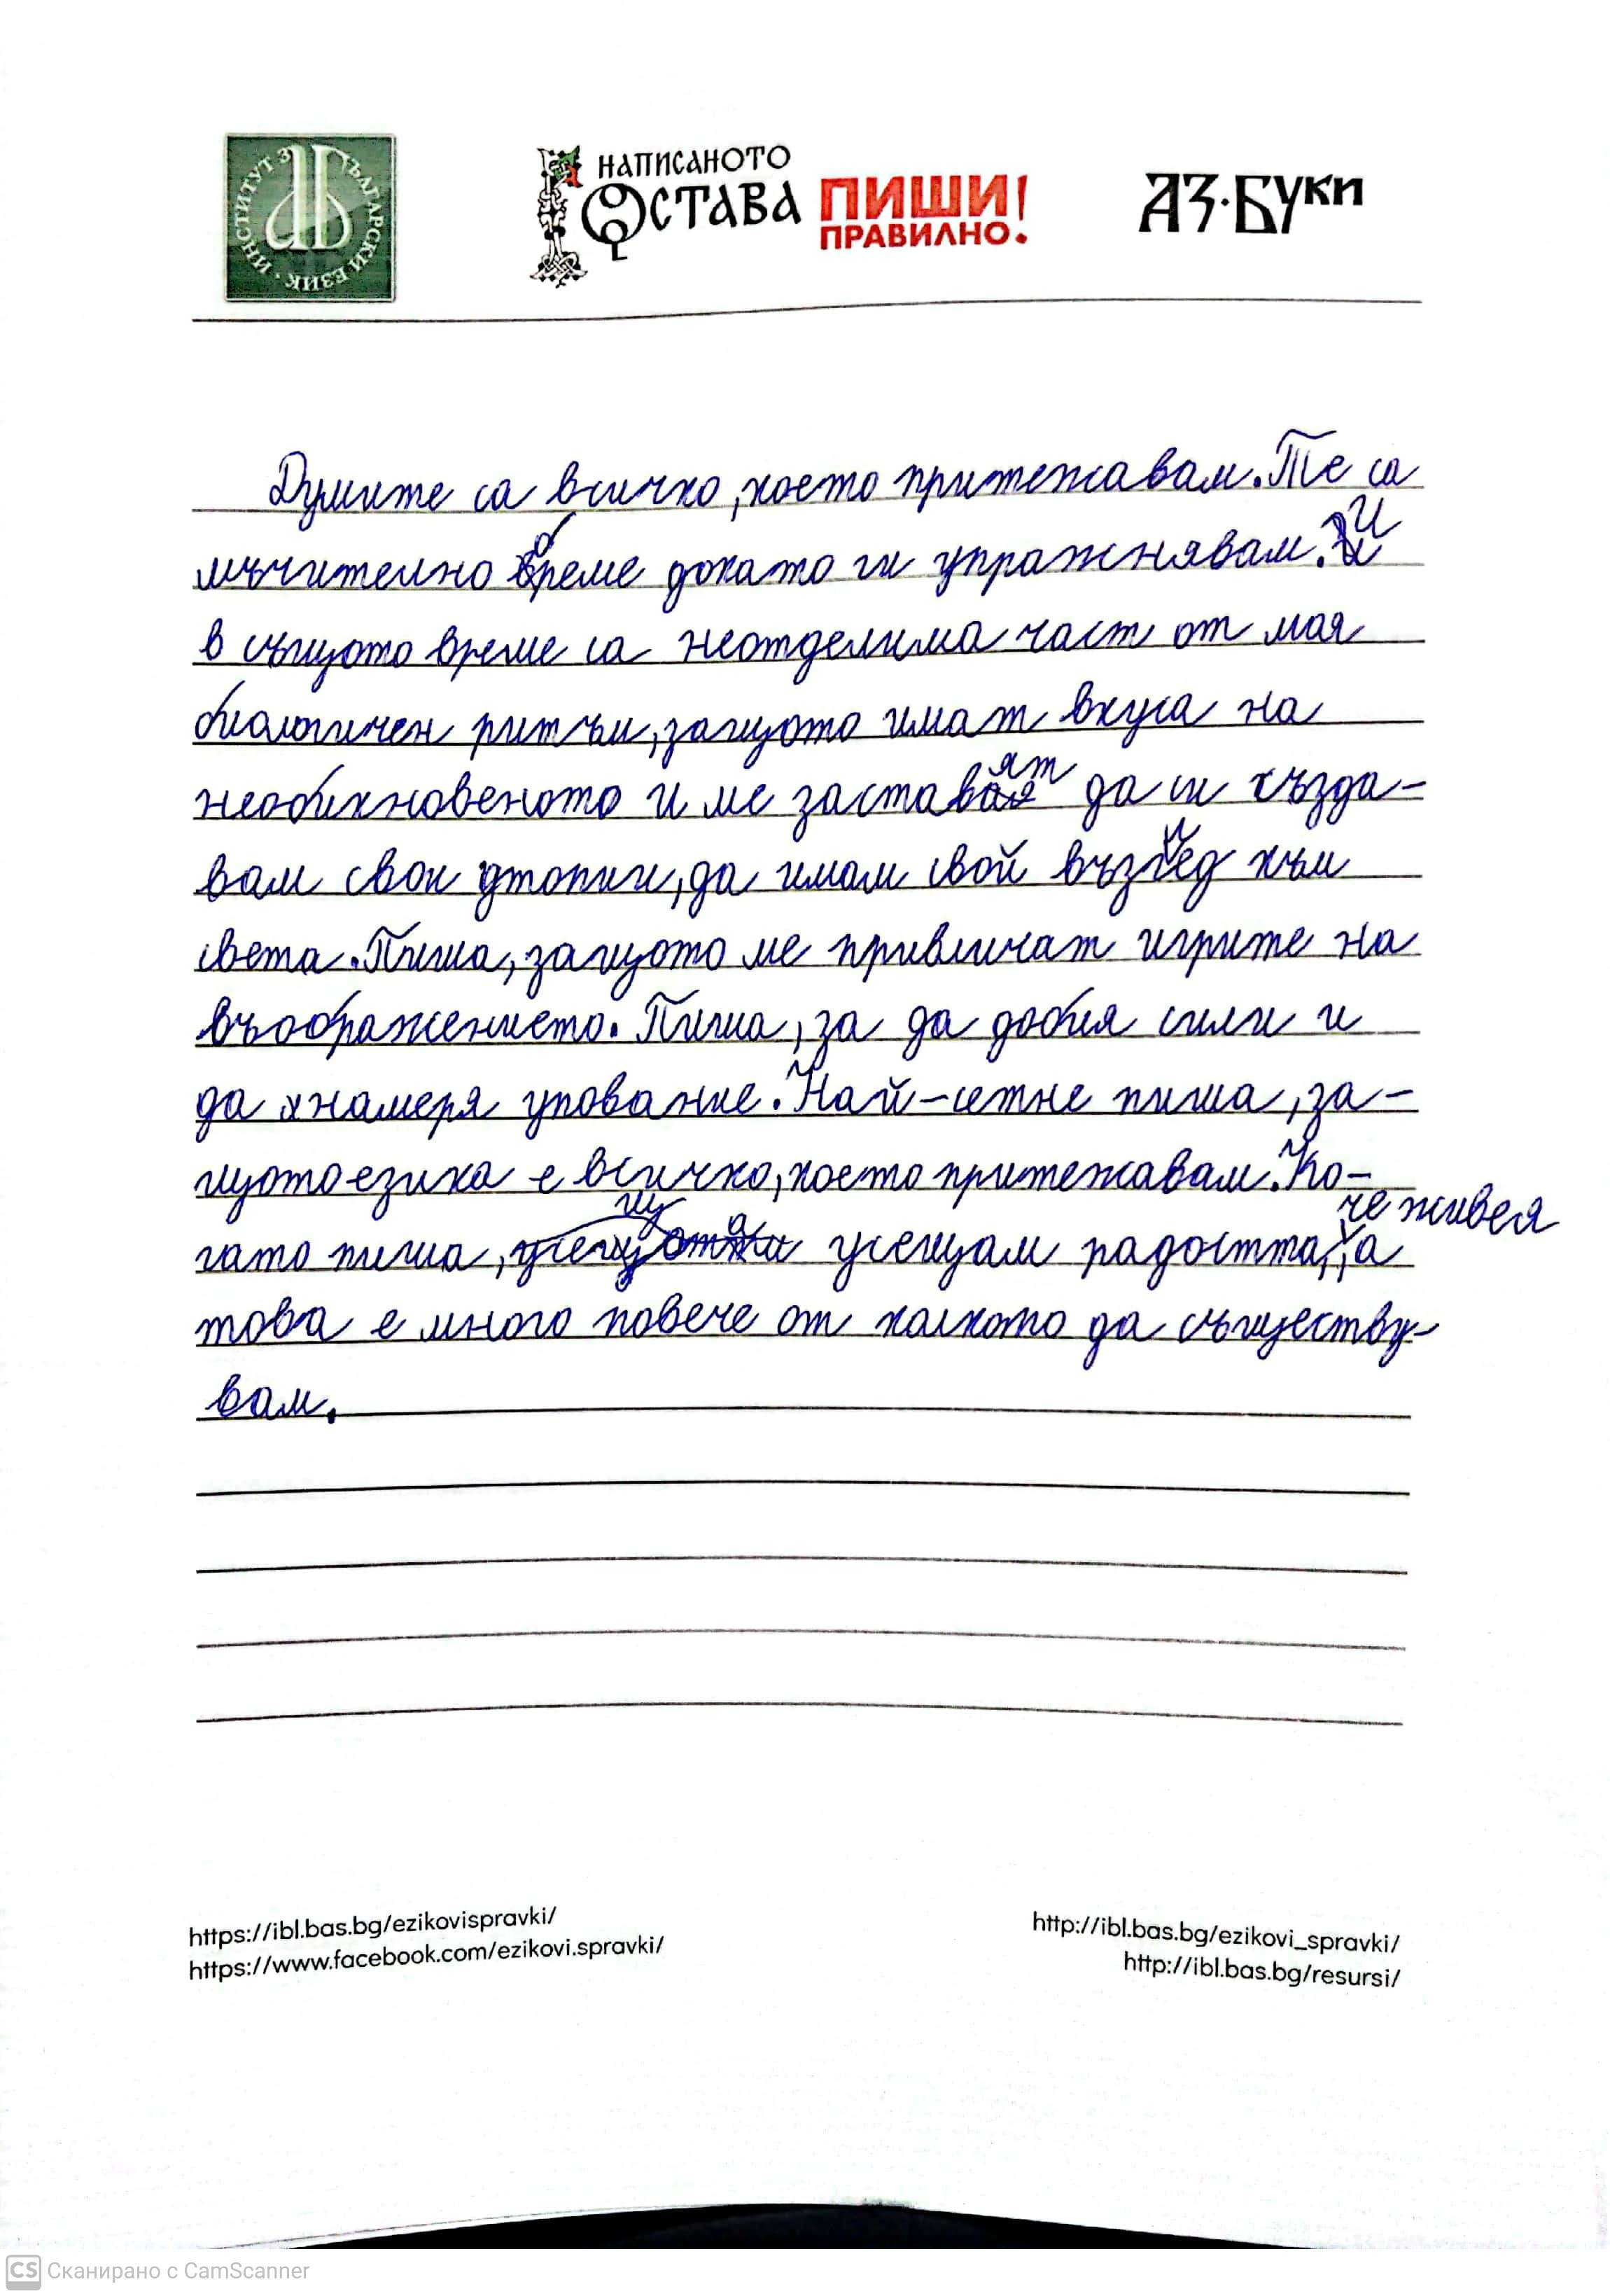 ИНСТИТУТ ЗА БЪЛГАРСКИ ЕЗИК
НАПИСАНОТО
ОСТАВА
ПИШИ
ПРАВИЛНО!
АЗ·БУКИ
Думите са всичко, което притежавам. Те са
мъчително бреме докато ги упражнявам. И
в същото време са неотделима част от мая
биологичен ритъм, защото имат вкуса на
необикновеното и ме заставят да си създа-
вам свои утопии, да имам свой възглед към
света. Пиша, защото ме привличат игрите на
въображението. Пиша, за да добия сили и
да намеря упование. Най-сетне пиша, за-
щото езика е всичко, което притежавам. Ко-
гато пиша, усещам радостта, че живея, а
това е много повече от колкото да съществу-
вам.
https://ibl.bas.bg/ezikovispravki/
https://www.facebook.com/ezikovi.spravki/
http://ibl.bas.bg/ezikovi_spravki/
http://ibl.bas.bg/resursi/
CS Сканирано с CamScanner